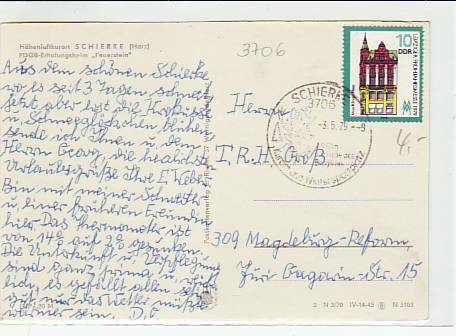 Höhenluftkurort SCHIERKE (Harz)
FDGB-Erholungsheim „Feuerstein"
3706
Aus dem schönen Schierke
wo es seit 3 Tagen schneit
jetzt aber
u. Schneeglöckchen blühen
sende ich Ihnen u. dem
Herrn Georg, die herzlichsten
Urlaubsgrüße Ihre E. Weber
Bin mit meiner Schwester
einer früheren Freundin
hier. Das Thermometer ist
von 14° auf 2° gesunken.
Die Unterkunft u. Verpflegung
sind ganz prima u.
es gefällt allen sehr
gut nur das Wetter müßte
wärmer sein. D.O
Herrn
I.R.H Groß
309 Magdeburg-Reform,
Juri Gagarin-Str. 15
10
DDR
SCHIERKE
3706
-3.5.79.-9
4,-
2 N 3/70 IV-14-45 N 3103